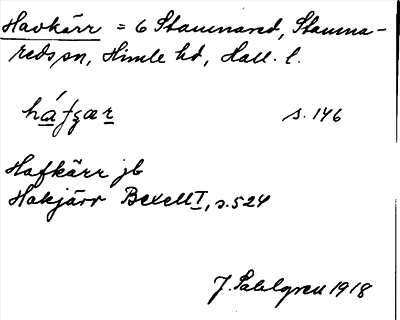 Havkärr = 6 Stamnared, Stamna-
reds sn, Himle hd, Hall. l.
háfʒær s. 146
Hafkärr jb
Hakjärr Bexell I, s. 524
J. Sahlgren 1918